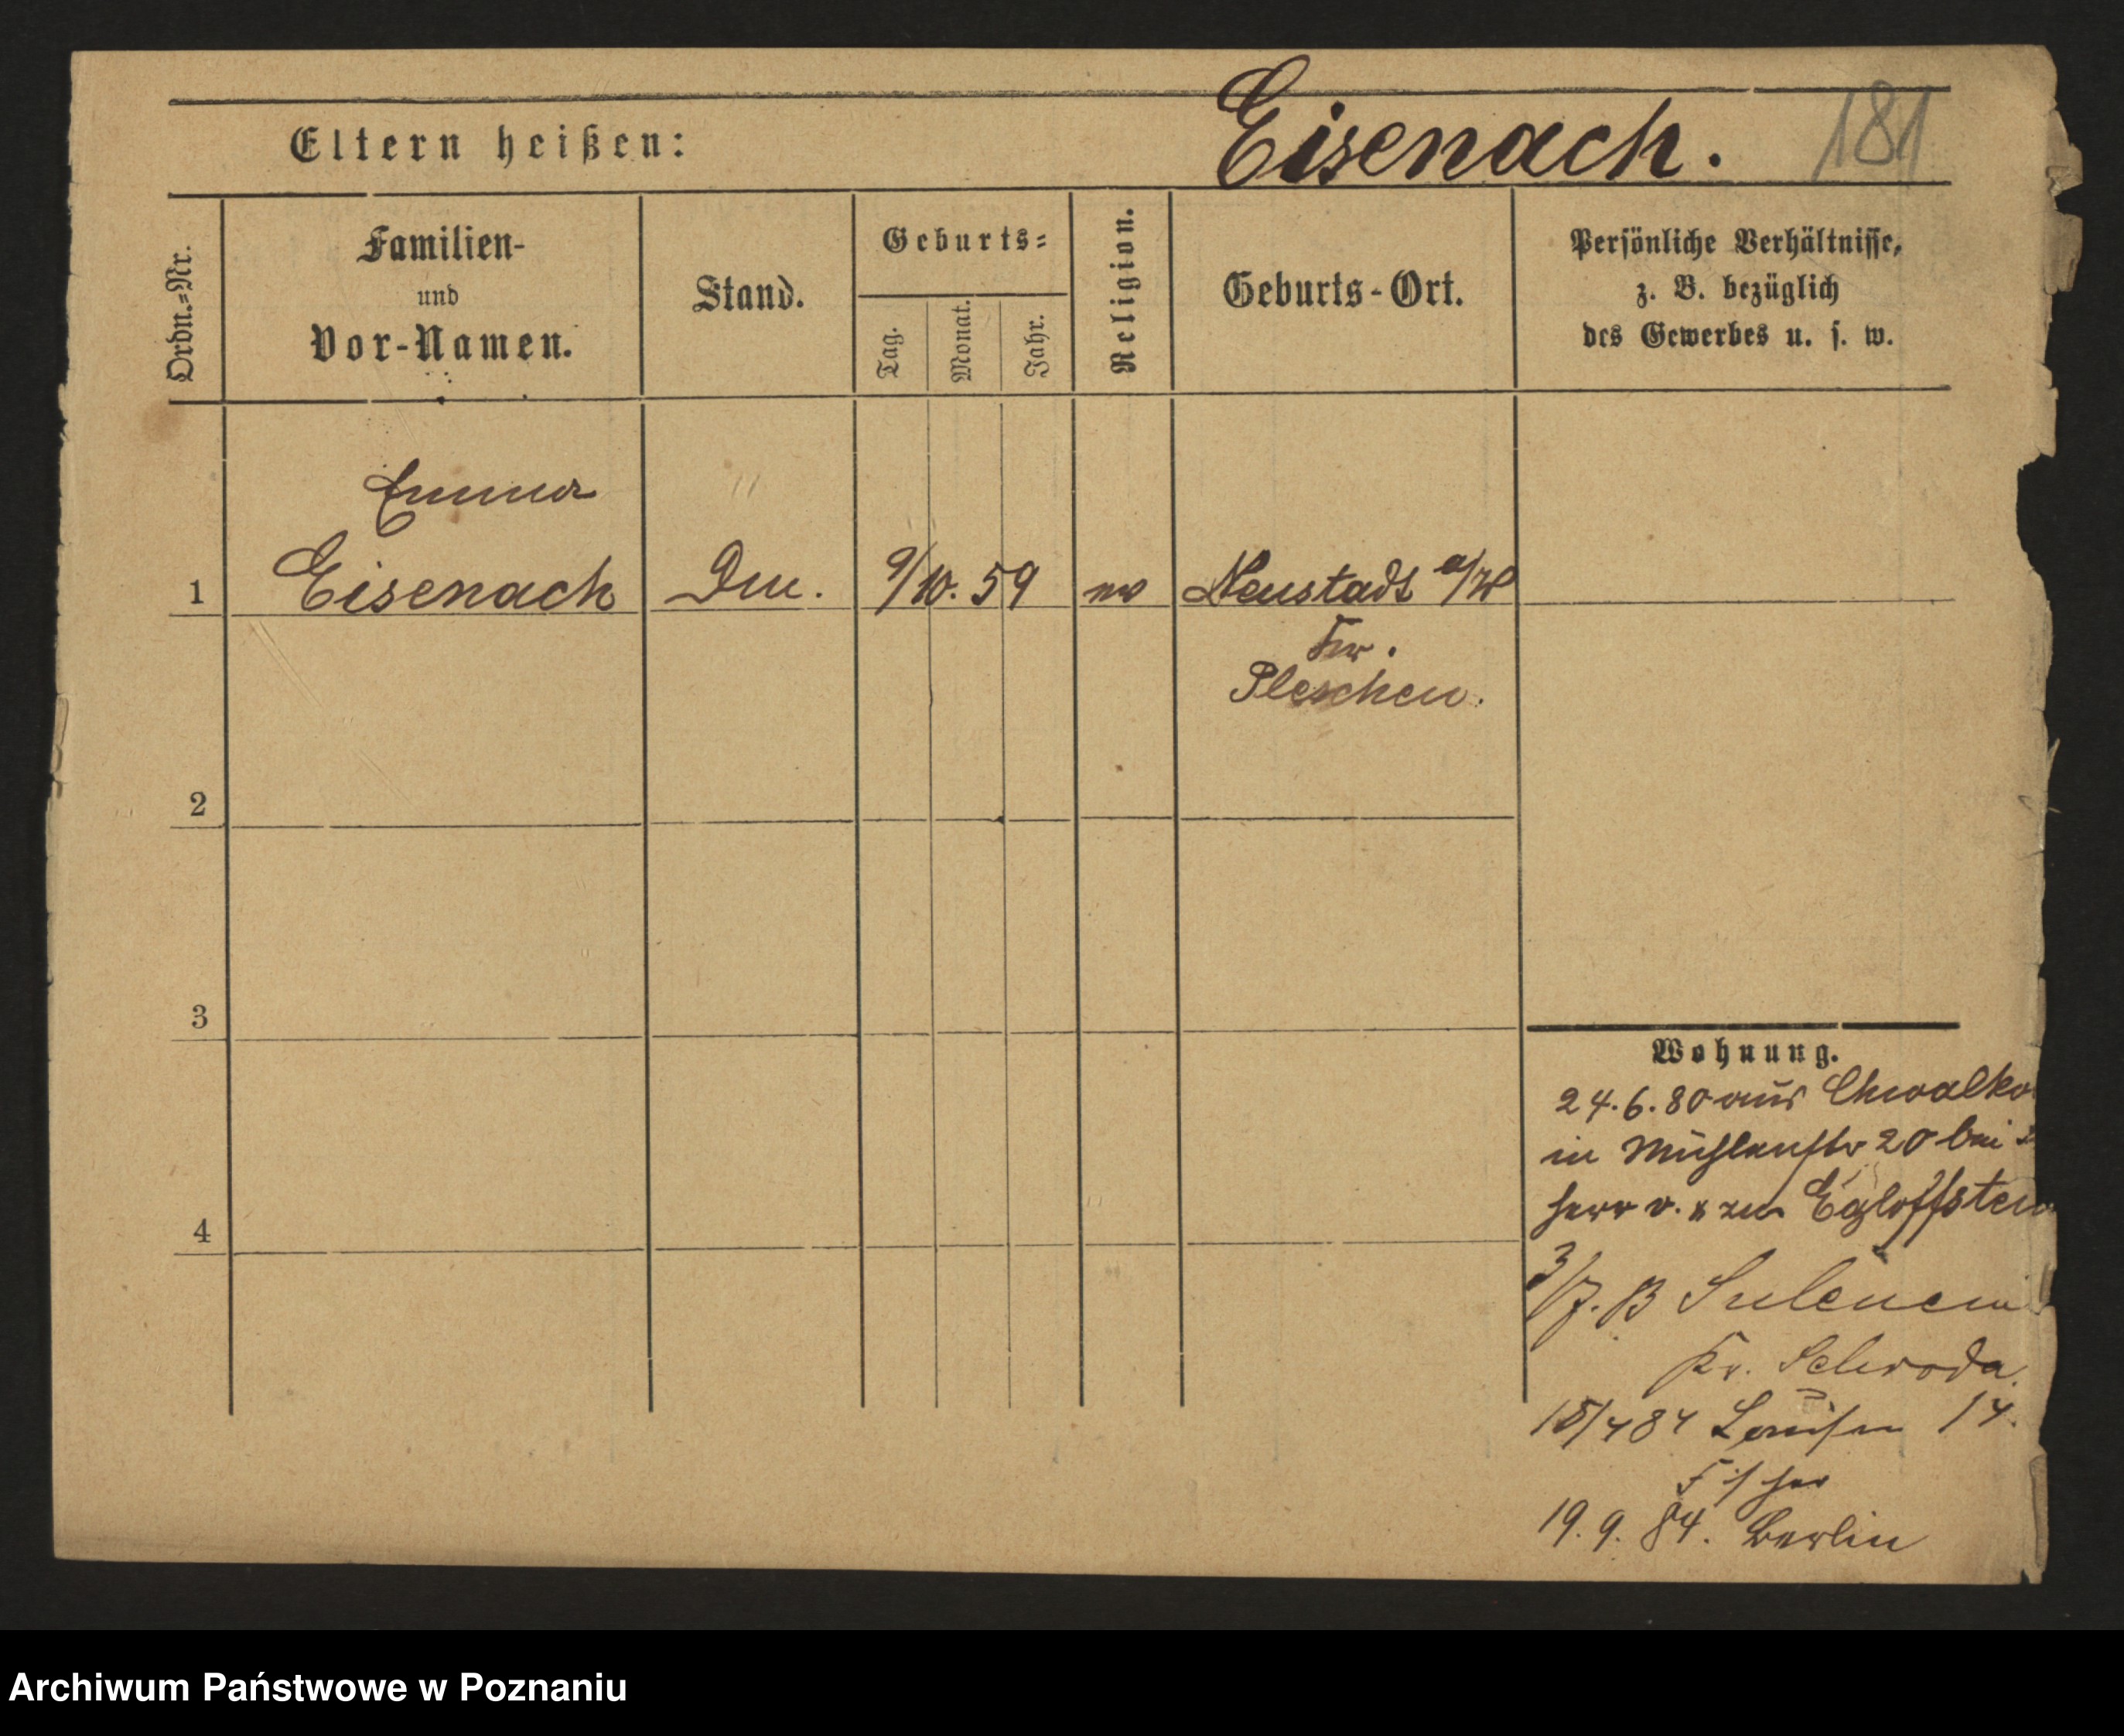 Eltern heißen: Eisenach. 181
Ordn.=Nr.
Familien-
und
Vor-Namen.
Stand.
Geburts=
Tag.
Monat.
Jahr.
Religion.
Geburts-Ort.
Persönliche Verhältnisse,
z. B. bezüglich
des Gewerbes u. s. w.
Emma
1 Eisenach 9/10. 59 Neustadt a/W
Kr.
Pleschen.
2
3
4
Wohnung.
24. 6. 80 aus Chwalko
in Mühlenstr 20 bei
Herr v. u zu Egloffstein
3/7. B
Kr. Schroda.
15/4 84 Louisen 14.
19. 9. 84. Berlin
Archiwum Państwowe w Poznaniu